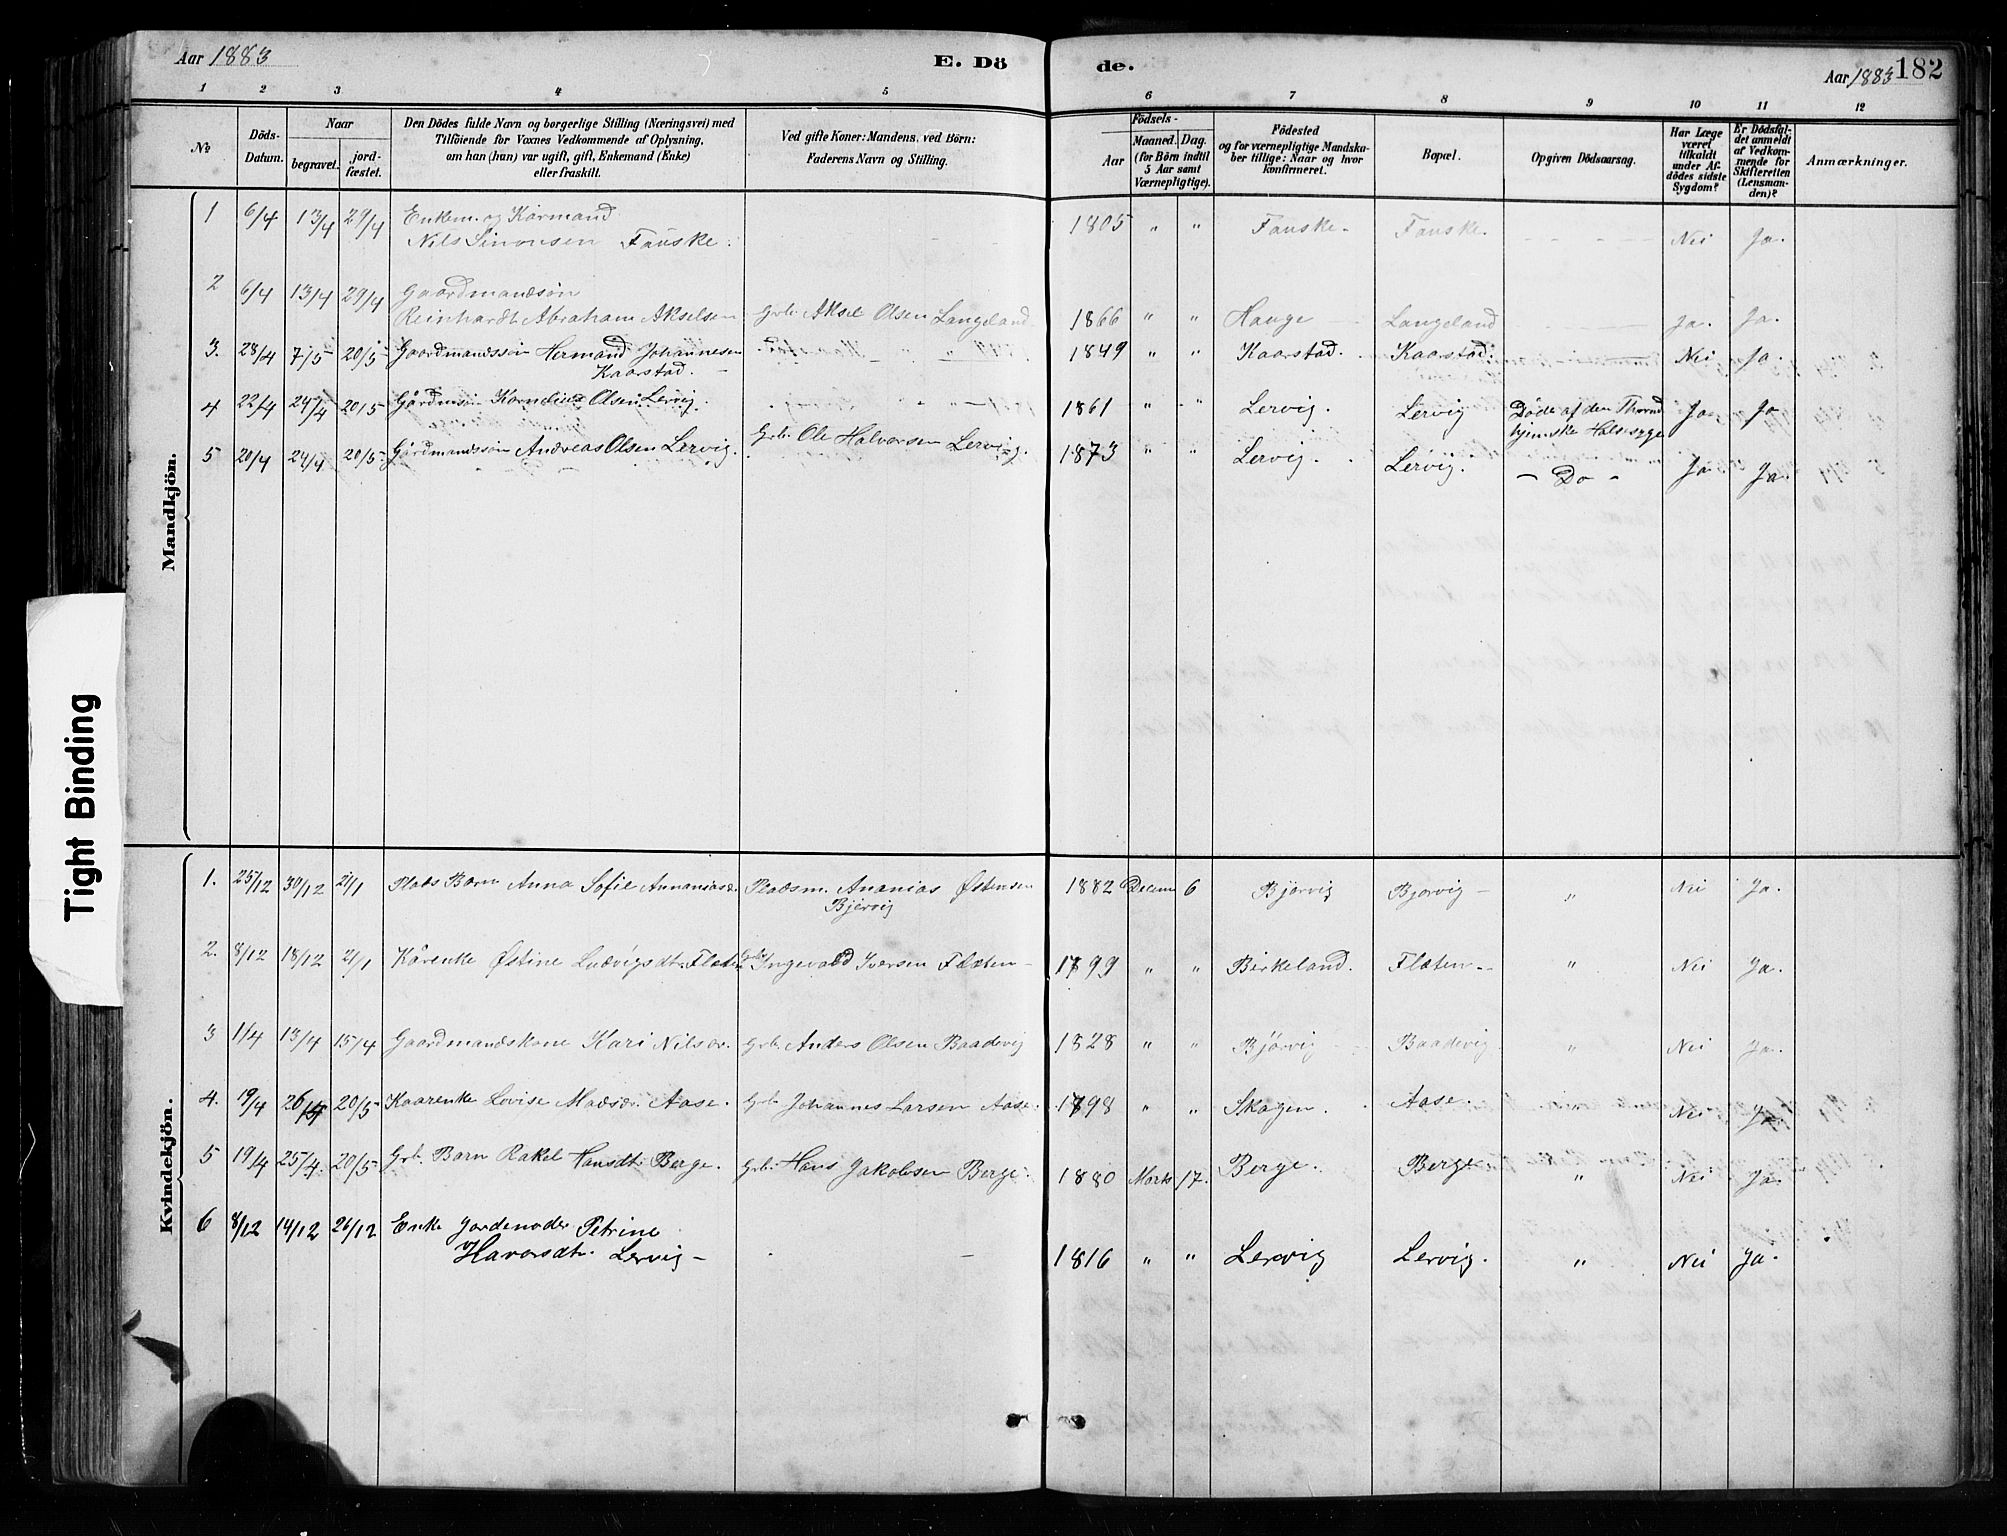 Aar 1883
E. Dö
de.
Aar 1883 182
1 2 3 4 5 6 7 8 9 10 11 12
№
Döds-Datum.
Naar
begravet.
jord-fæstet.
Den Dödes fulde Navn og borgerlige Stilling (Næringsvei) med
Tilföiende for Voxnes Vedkommende af Oplysning,
om han (hun) var ugift, gift, Enkemand (Enke)
eller fraskilt.
Ved gifte Koner: Mandens, ved Börn:
Faderens Navn og Stilling.
Födsels-
Aar
Maaned. Dag.
(for Börn indtil
5 Aar samt
Værnepligtige).
Födested
og for værnepligtige Mandska-
ber tillige: Naar og hvor
konfirmeret.
Bopæl.
Opgiven Dödsaarsag.
Har Læge
været
tilkaldt
under Af-
dödes sidste
Sygdom?
Er Dödsfal-
det anmeldt
af Vedkom-
mende for
Skifteretten
(Lensman-
den)?
Anmærkninger.
Mandkjön.
1 6/4 13/4 29/4 Enkem. og Kårmand
Nils Simonsen Fauske. 1805 " " Fauske - Fauske. Nei Ja.
2 6/4 13/4 29/4 Gaardmandssön
Reinhardt Abraham Akselsen Grb. Aksel Olsen Langeland 1866 " " Hauge Langeland Ja. Ja.
3. 28/4 7/5 20/5 Gaardmandssön Hermand Johannesen
Kaarstad. 1849 " " Kaarstad. Kaarstad. Nei Ja.
4 22/4 24/4 20/5 Gårdmsön Kornelius Olsen Lervig. 1861 " " Lervig. Lervig Döde af den Thrond
hjemske Halssyge Ja Ja
5 20/4 24/4 20/5 Gårdmandssön Andreas Olsen Lervig. Grb. Ole Halvorsen Lervig. 1873 " " Lervig. Lervig. - Do - Ja Ja.
Kvindekjön.
1. 25/12 30/12 21/1 Plads Barn Anna Sofie Annaniasd. Pladsm. Ananias Östensen
Bjervig 1882 Decem 6 Bjørvig Bjørvig - " Nei Ja.
2. 8/12 18/12 21/1 Kårenke Østine Ludvigsdt. Flæten Ingevald Iversen Flæten - 1799 " " Birkeland. Flæten - " Nei Ja.
3 1/4 13/4 15/4 Gaardmandskone Kari Nilsd. Grb. Anders Olsen Baadevig 1828 " " Bjørvig Baadevig " Nei Ja.
4. 19/4 26/4 20/5 Kaarenke Lovise Madsd. Aase. Grb. Johannes Larsen Aase. 1798 " " Skogen. Aase. Nei Ja
5 19/4 25/4. 20/5 Grb. Barn Rakel Hansdt. Berge. Grb. Hans Jakobsen Berge. 1880 Marts 17. Berge. Berge " Nei Ja.
6 8/12 14/12 26/12 Enke Jordemoder Petrine
Havorsdt. Lervig - 1816 " " Lervig Lervig. " Nei Ja.
Tight Binding